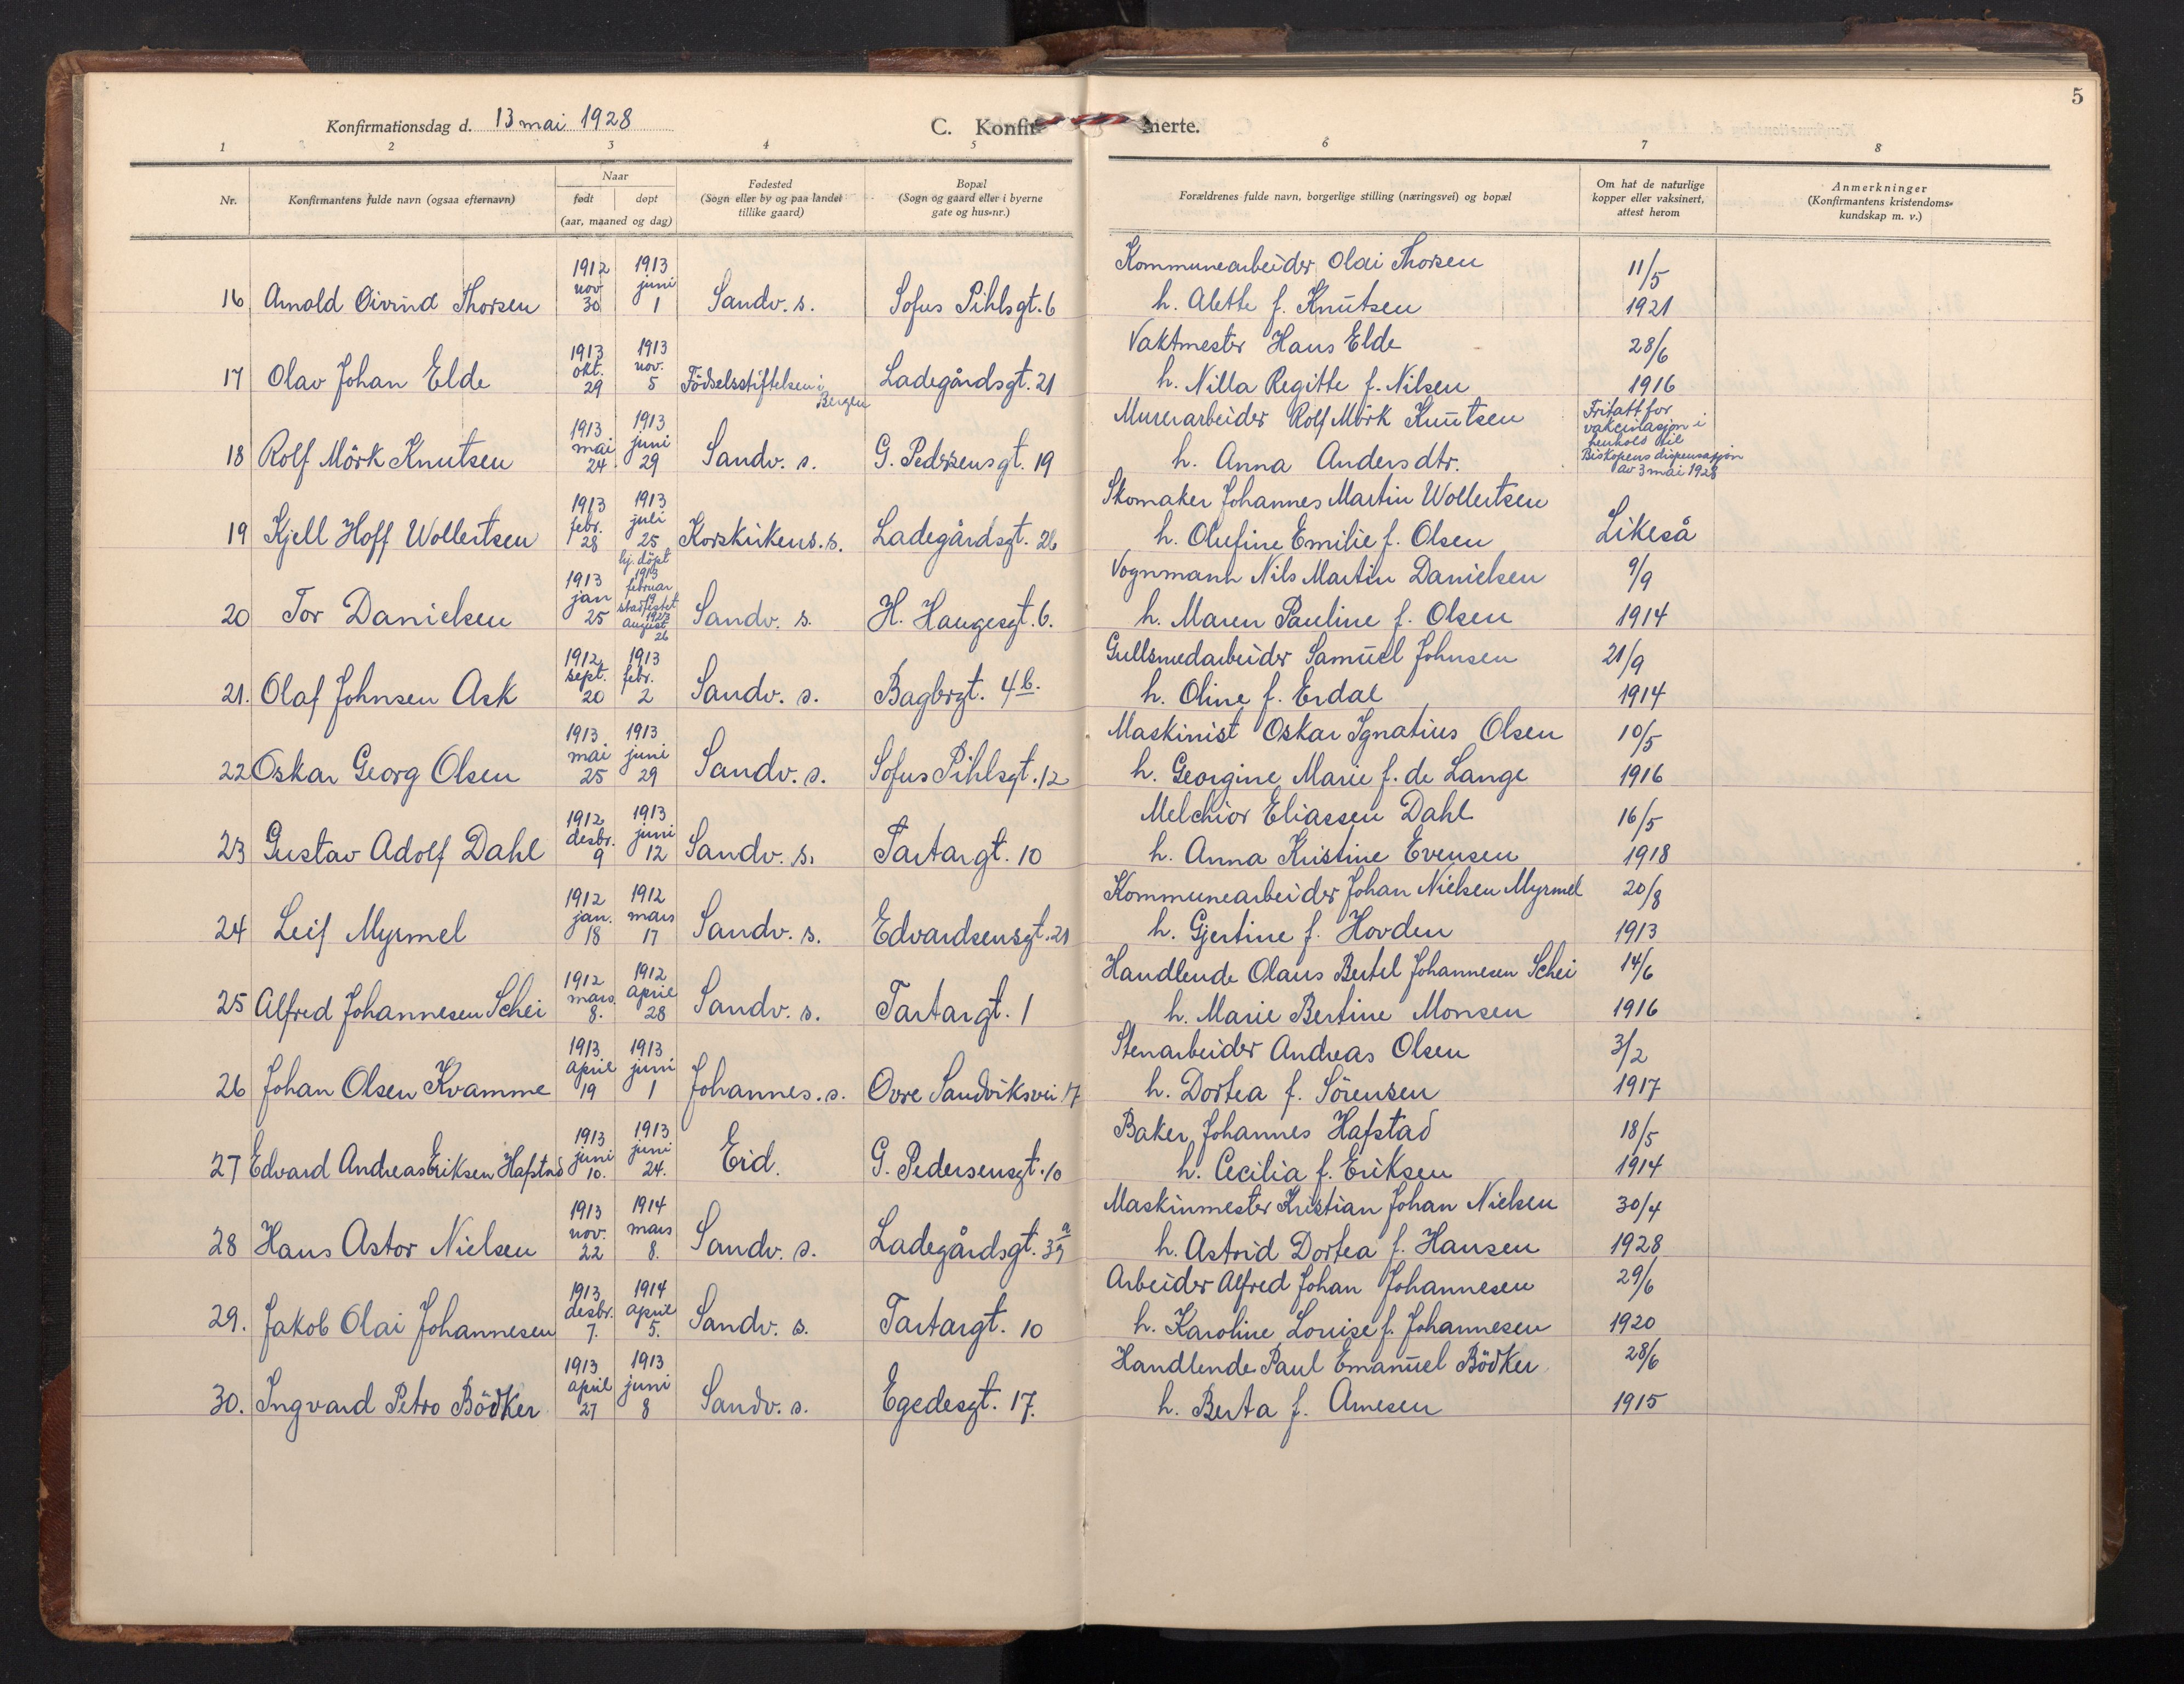 5
Konfirmationsdag d. 13 mai 1928
C. Konfir merte.
1 2 3 4 5 6 7 8
Nr.
Konfirmantens fulde navn (ogsaa efternavn)
Naar
født
døpt
(aar, maaned og dag)
Fødested
(Sogn eller by og paa landet
tillike gaard)
Bopæl
(Sogn og gaard eller i byerne
gate og hus-nr.)
Forældrenes fulde navn, borgerlige stilling (næringsvei) og bopæl
Om hat de naturlige
kopper eller vaksinert,
attest herom
Anmerkninger
(Konfirmantens kristendoms-
kundskap m. v.)
1912 1913 Kommunearbeider Olai Thorsen 11/5
nov juni
16 Arnold Oivind Thorsen 30 1 Sandv. s. Sofus Pihlsgt. 6 h. Alette f. Knutsen 1921
1913 1913 Vaktmester Hans Elde 28/6
okt. nov.
17 Olav Johan Elde 29 5 Födselsstiftelsen i Bergen Ladegårdsgt. 21 h. Nilla Regitte f. Nilsen 1916
1913 1913 Murerarbeider Rolf Mörk Knutsen Fritatt for
mai juni vakcinasjon i
henhold til
18 Rolf Mörk Knutsen 24 29 Sandv. s. G. Pedersensgt. 19 h. Anna Andersdtr. Biskopens dispensasjon
av 3 mai 1928
1913 1913 Skomaker Johannes Martin Wollertsen
febr. juli
19 Kjell Hoff Wollertsen 28 25 Korskirkens. s. Ladegårdsgt. 26 h. Olufine Emilie f. Olsen Likeså
hj. döpt
1913 1913 Vognmann Nils Martin Danielsen 9/9
jan februar
19
stadfestet
20 Tor Danielsen 25 1927 Sandv. s. H. Haugesgt. 6. h. Maren Pauline f. Olsen 1914
august
26
1912 1913 Gullsmedarbeider Samuel Johnsen 21/9
sept. febr.
21. Olaf Johnsen Ask 20 2 Sandv. s. Bagbrgt. 4 b. h. Oline f. Erdal 1914
1913 1913 Maskinist Oskar Ignatius Olsen 10/5
mai juni
22 Oskar Georg Olsen 25 29 Sandv. s. Sofus Pihlsgt. 12 h. Georgine Marie f. de Lange 1916
1912 1913 Melchior Eliassen Dahl 16/5
desbr. juni
23 Gustav Adolf Dahl 9 12 Sandv. s. Tartargt. 10 h. Anna Kristine Evensen 1918
1912 1912 Kommunearbeider Johan Nielsen Myrmel 20/8
jan. mars
24 Leif Myrmel 18 17 Sandv. s. Edvardsensgt. 21 h. Gjertine f. Hovden 1913
1912 1912 Handlende Olaus Bertel Johannesen Schei 14/6
mars april
25 Alfred Johannesen Schei 8. 28 Sandv. s. Tartargt. 1 h. Marie Bertine Monsen 1916
1913 1913 Stenarbeider Andreas Olsen 3/2
april juni
26 Johan Olsen Kvamme 19 1 Johannes. s. Ovre Sandviksvei 17 h. Dortea f. Sörensen 1917
1913 1913 Baker Johannes Hafstad 18/5
juni juni
27 Edvard Andreas Eriksen Hafstad 10. 24. Eid. G. Pedersensgt. 10 h. Cecilia f. Eriksen 1914
1913 1914 Maskinmester Kristian Johan Nielsen 30/4
nov. mars
28 Hans Astor Nielsen 22 8. Sandv. s. Ladegårdsgt. 39 a h. Astrid Dortea f. Hansen 1928
1913 1914 Arbeider Alfred Johan Johannesen 29/6
desbr. april
29. Jakob Olai Johannesen 7. 5. Sandv. s. Tartargt. 10 h. Karoline Louise f. Johannesen 1920
1913 1913 Handlende Paul Emanuel Bödker 28/6
april juni
30. Ingvard Petro Bödker 27 8 Sandv. s. Egedesgt. 17. h. Berta f. Arnesen 1915